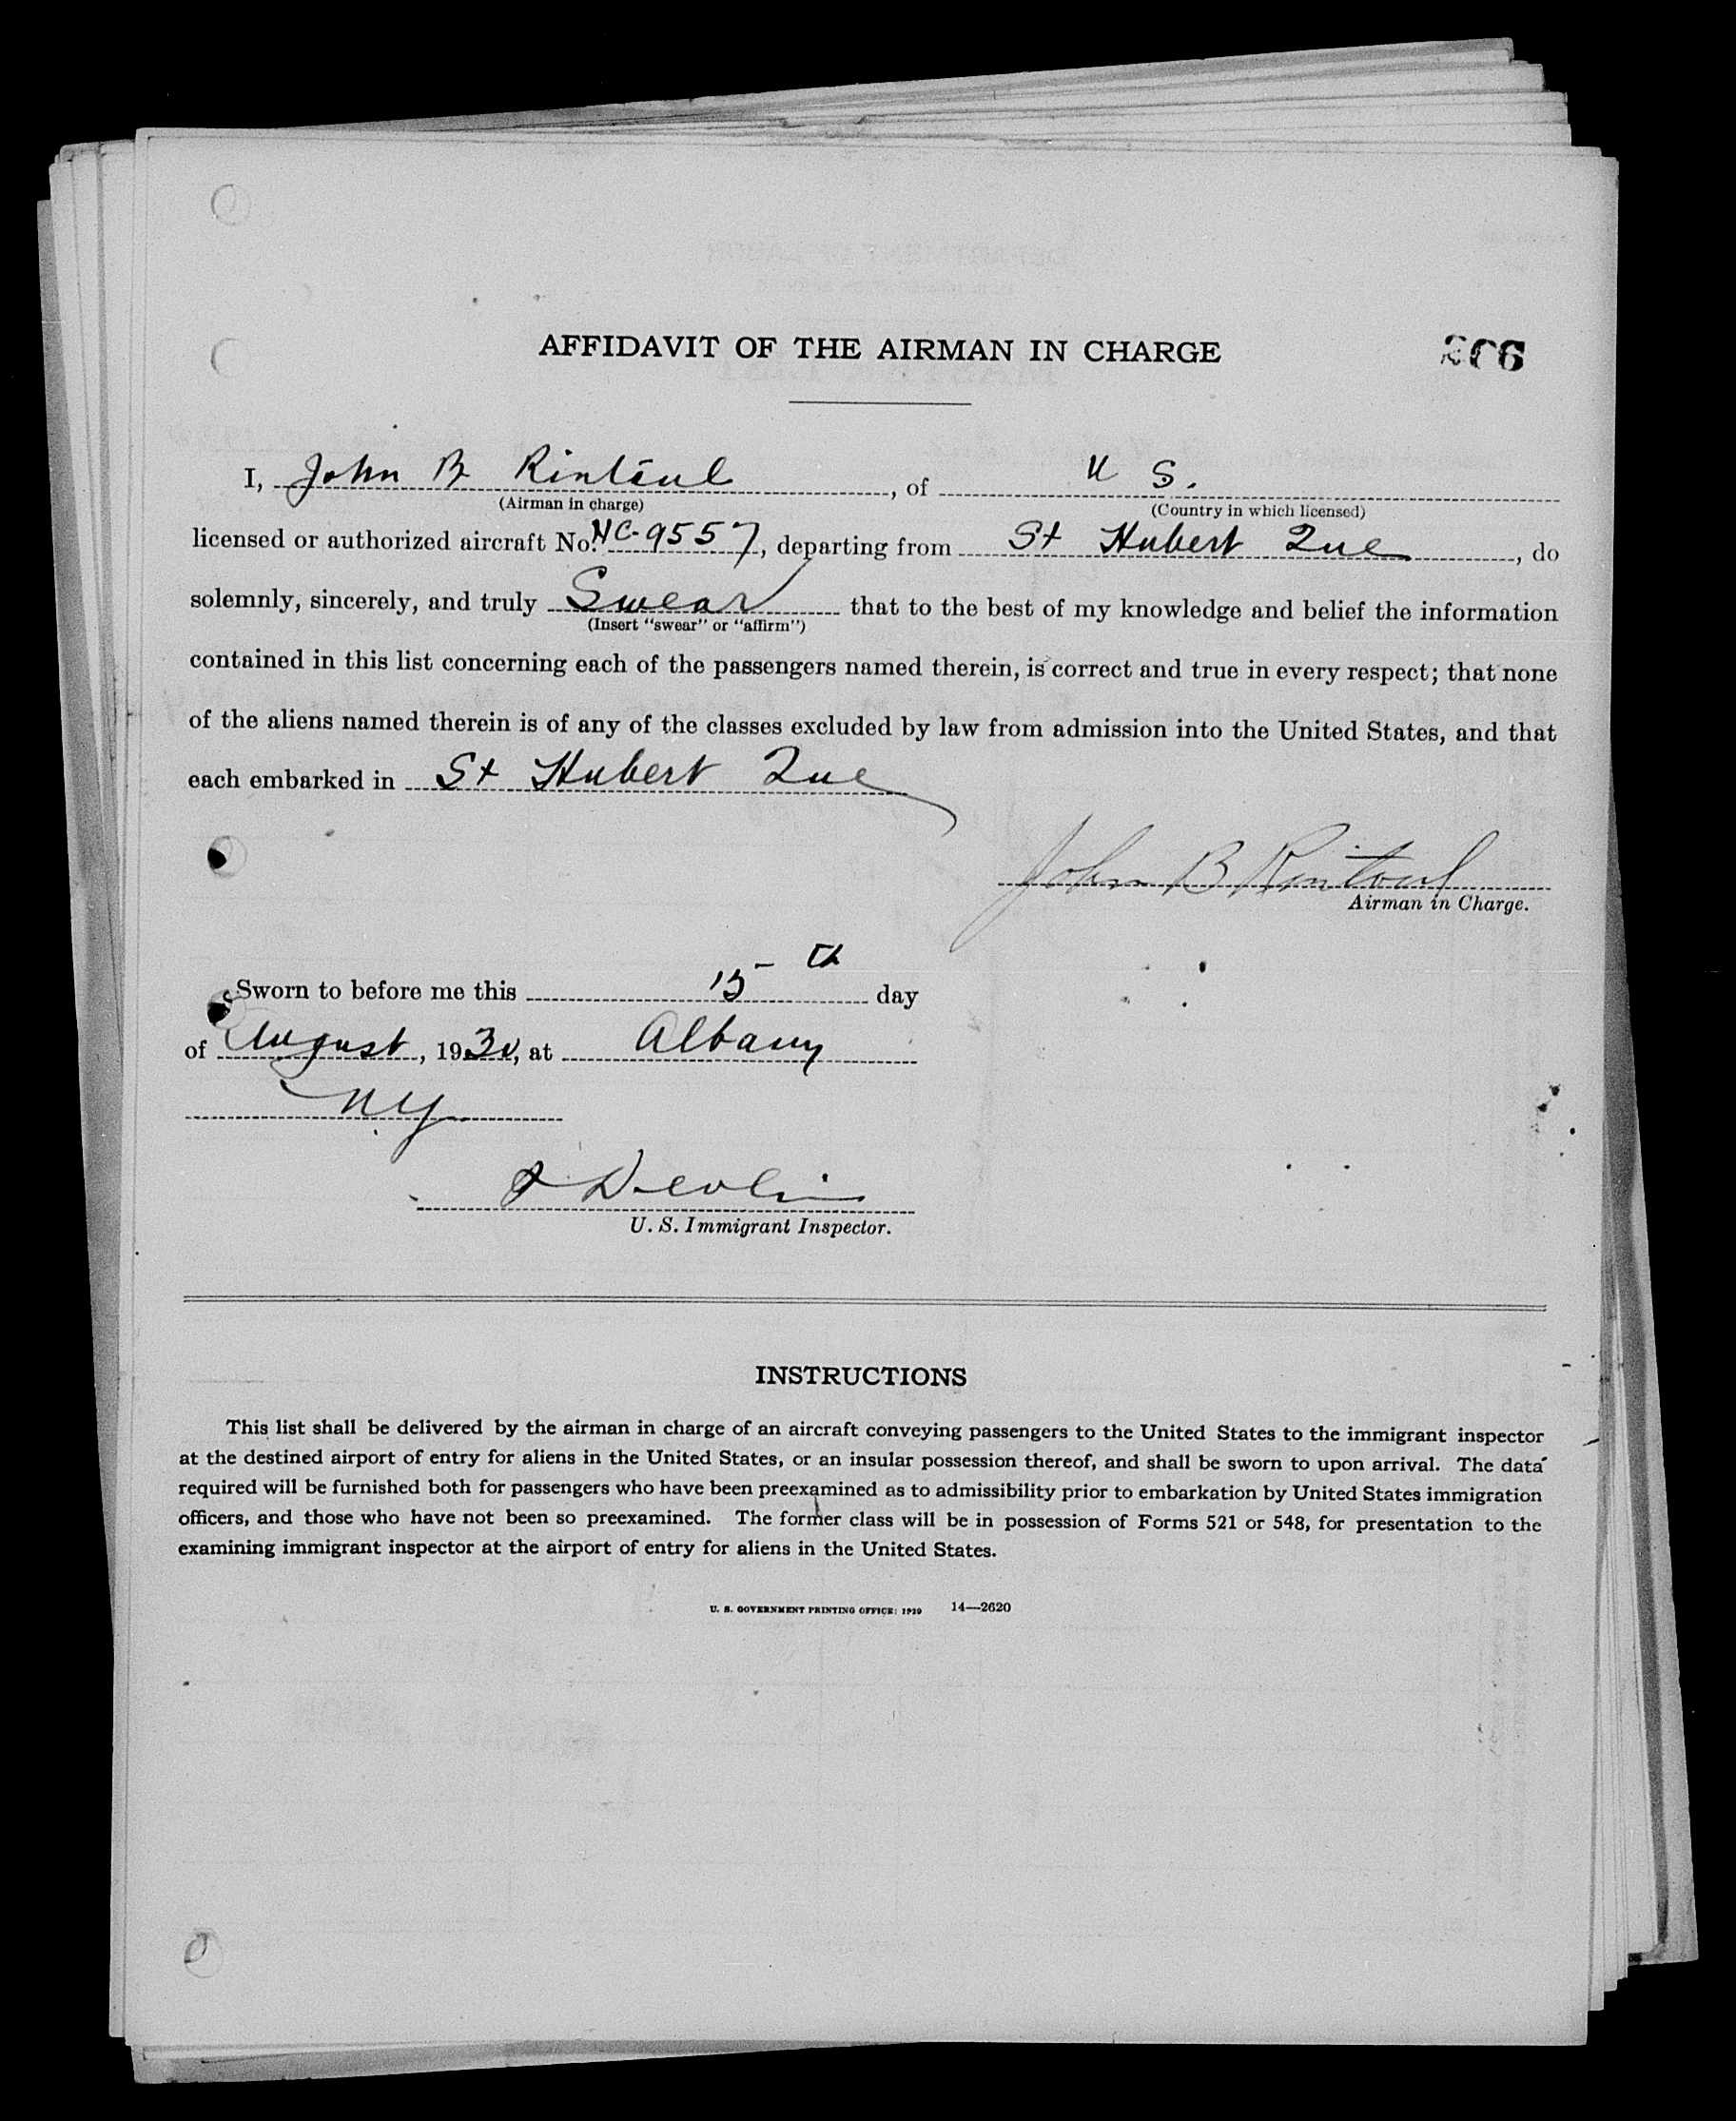 AFFIDAVIT OF THE AIRMAN IN CHARGE
206
I, John B Rintoul, of U S.
(Airman in charge) (Country in which licensed)
licensed or authorized aircraft No. NC-9557, departing from St Hubert Que, do
solemnly, sincerely, and truly Swear that to the best of my knowledge and belief the information
(Insert "swear" or "affirm")
contained in this list concerning each of the passengers named therein, is correct and true in every respect; that none
of the aliens named therein is of any of the classes excluded by law from admission into the United States, and that
each embarked in St Hubert Que
John B Rintoul
Airman in Charge.
Sworn to before me this 15th day
of August, 1930, at Albany
NY
Devlin
U. S. Immigrant Inspector.
INSTRUCTIONS
This list shall be delivered by the airman in charge of an aircraft conveying passengers to the United States to the immigrant inspector
at the destined airport of entry for aliens in the United States, or an insular possession thereof, and shall be sworn to upon arrival. The data
required will be furnished both for passengers who have been preexamined as to admissibility prior to embarkation by United States immigration
officers, and those who have not been so preexamined. The former class will be in possession of Forms 521 or 548, for presentation to the
examining immigrant inspector at the airport of entry for aliens in the United States.
U. S. GOVERNMENT PRINTING OFFICE: 1929 14—2620